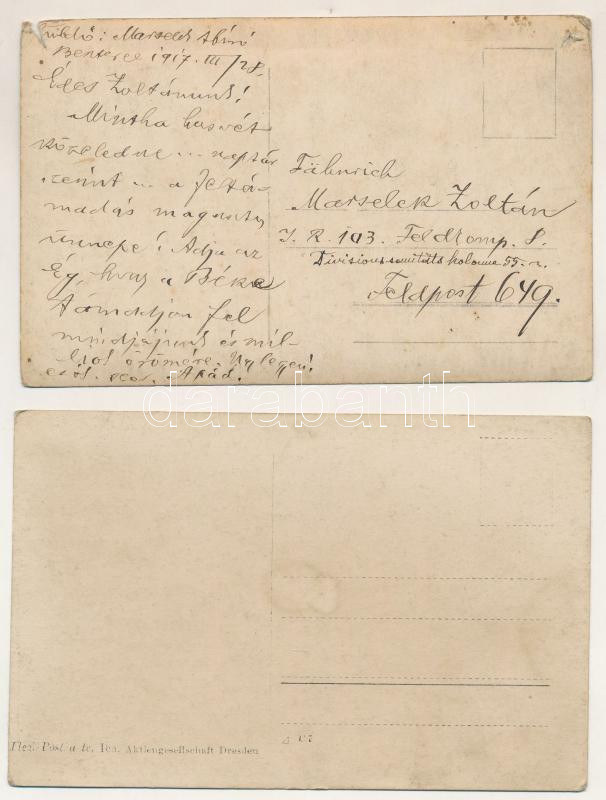 Küldő: Marselek
1917. III/28.
Édes Zoltánunk!
Mintha husvét
közeledne ... naptár
szerint ... a feltá-
madás magasztos
ünnepe! Adja az
Ég, hogy a Béke
támadjon fel
mindjájunk és mil-
liók örömére. Ugy legyen!
csók. Apád.
Fähnrich
Marselek Zoltán
I. R. 103. Feldkomp. 8.
Divisionssanitätskolonne 55.
Feldpost 649.
darabanth
Aktiengesellschaft Dresden